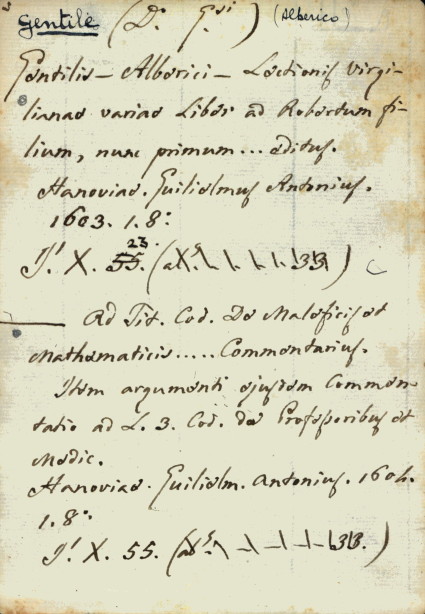 Gentile (D. G.si) (Alberico)
Gentilis - Alberici - Lectionis Virgi-
lianae variae Liber ad Robertum fi-
lium, nunc primum... editus.
Hanoviae. Guilielmus Antonius.
1603. 1. 8:
23.
I! X. 55. (
— Ad Tit. Cod. De Maleficis et
Mathematicis ..... Commentarius.
Item argumenti ejusdem Commen-
tatio ad L. 3. Cod. de Professoribus et
Medic.
Hanoviae. Guilielm. Antonius. 1604.
1. 8:
I! X. 55. (